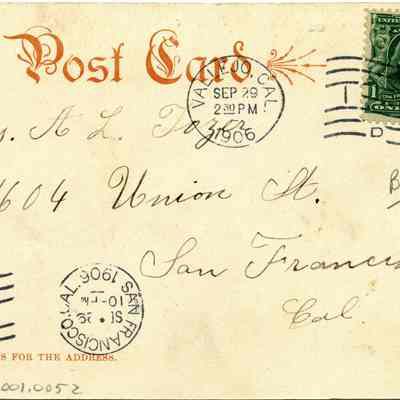 Post Card
VALLEJO, CAL.
SEP 29
2:30 PM
1906
1
ONE
s. A. L. Tozer
1604 Union St.
B
San Francis
Cal.
SAN FRANCISCO, CAL. 1906
10 - PM
S1 29
S FOR THE ADDRESS.
001.0052